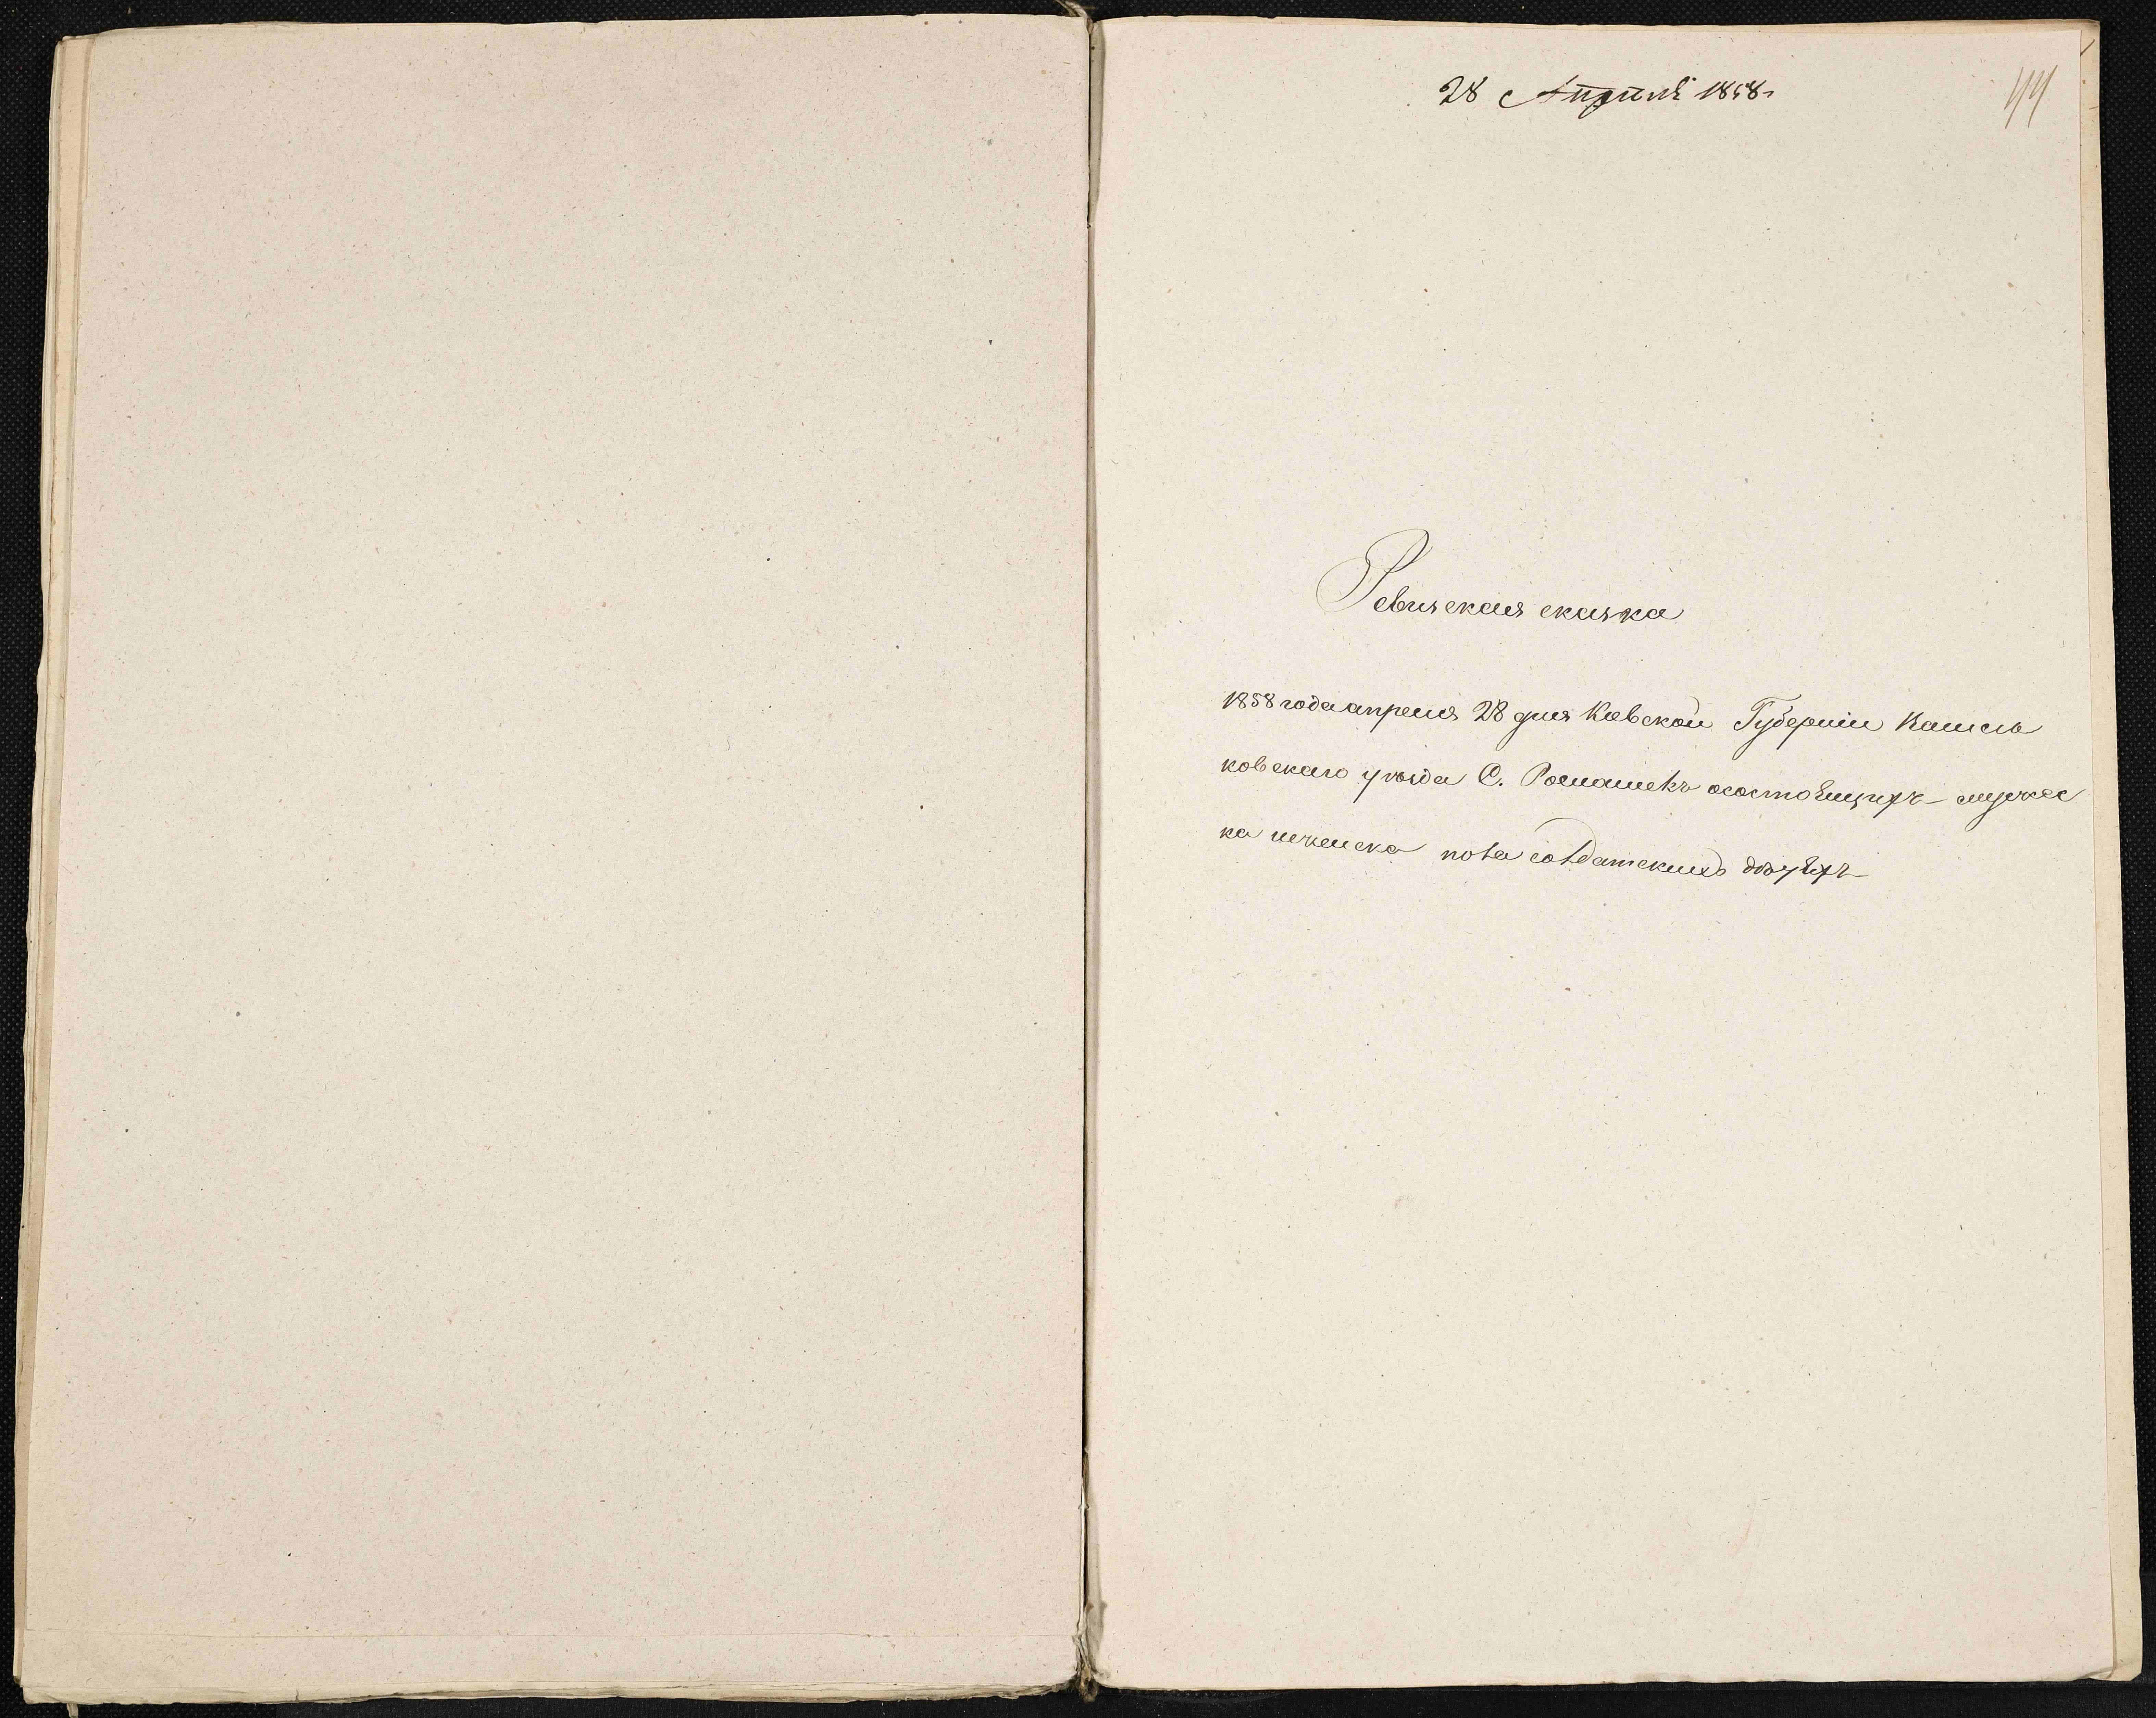 28 Апреля 1858 г
44
Ревизская сказка
1858 года апреля 28 дня Киевской Губерніи Василь
ковскаго уѣзда С. Ромашекъ осостоящихъ мужес
ка иженска пола солдатскихъ